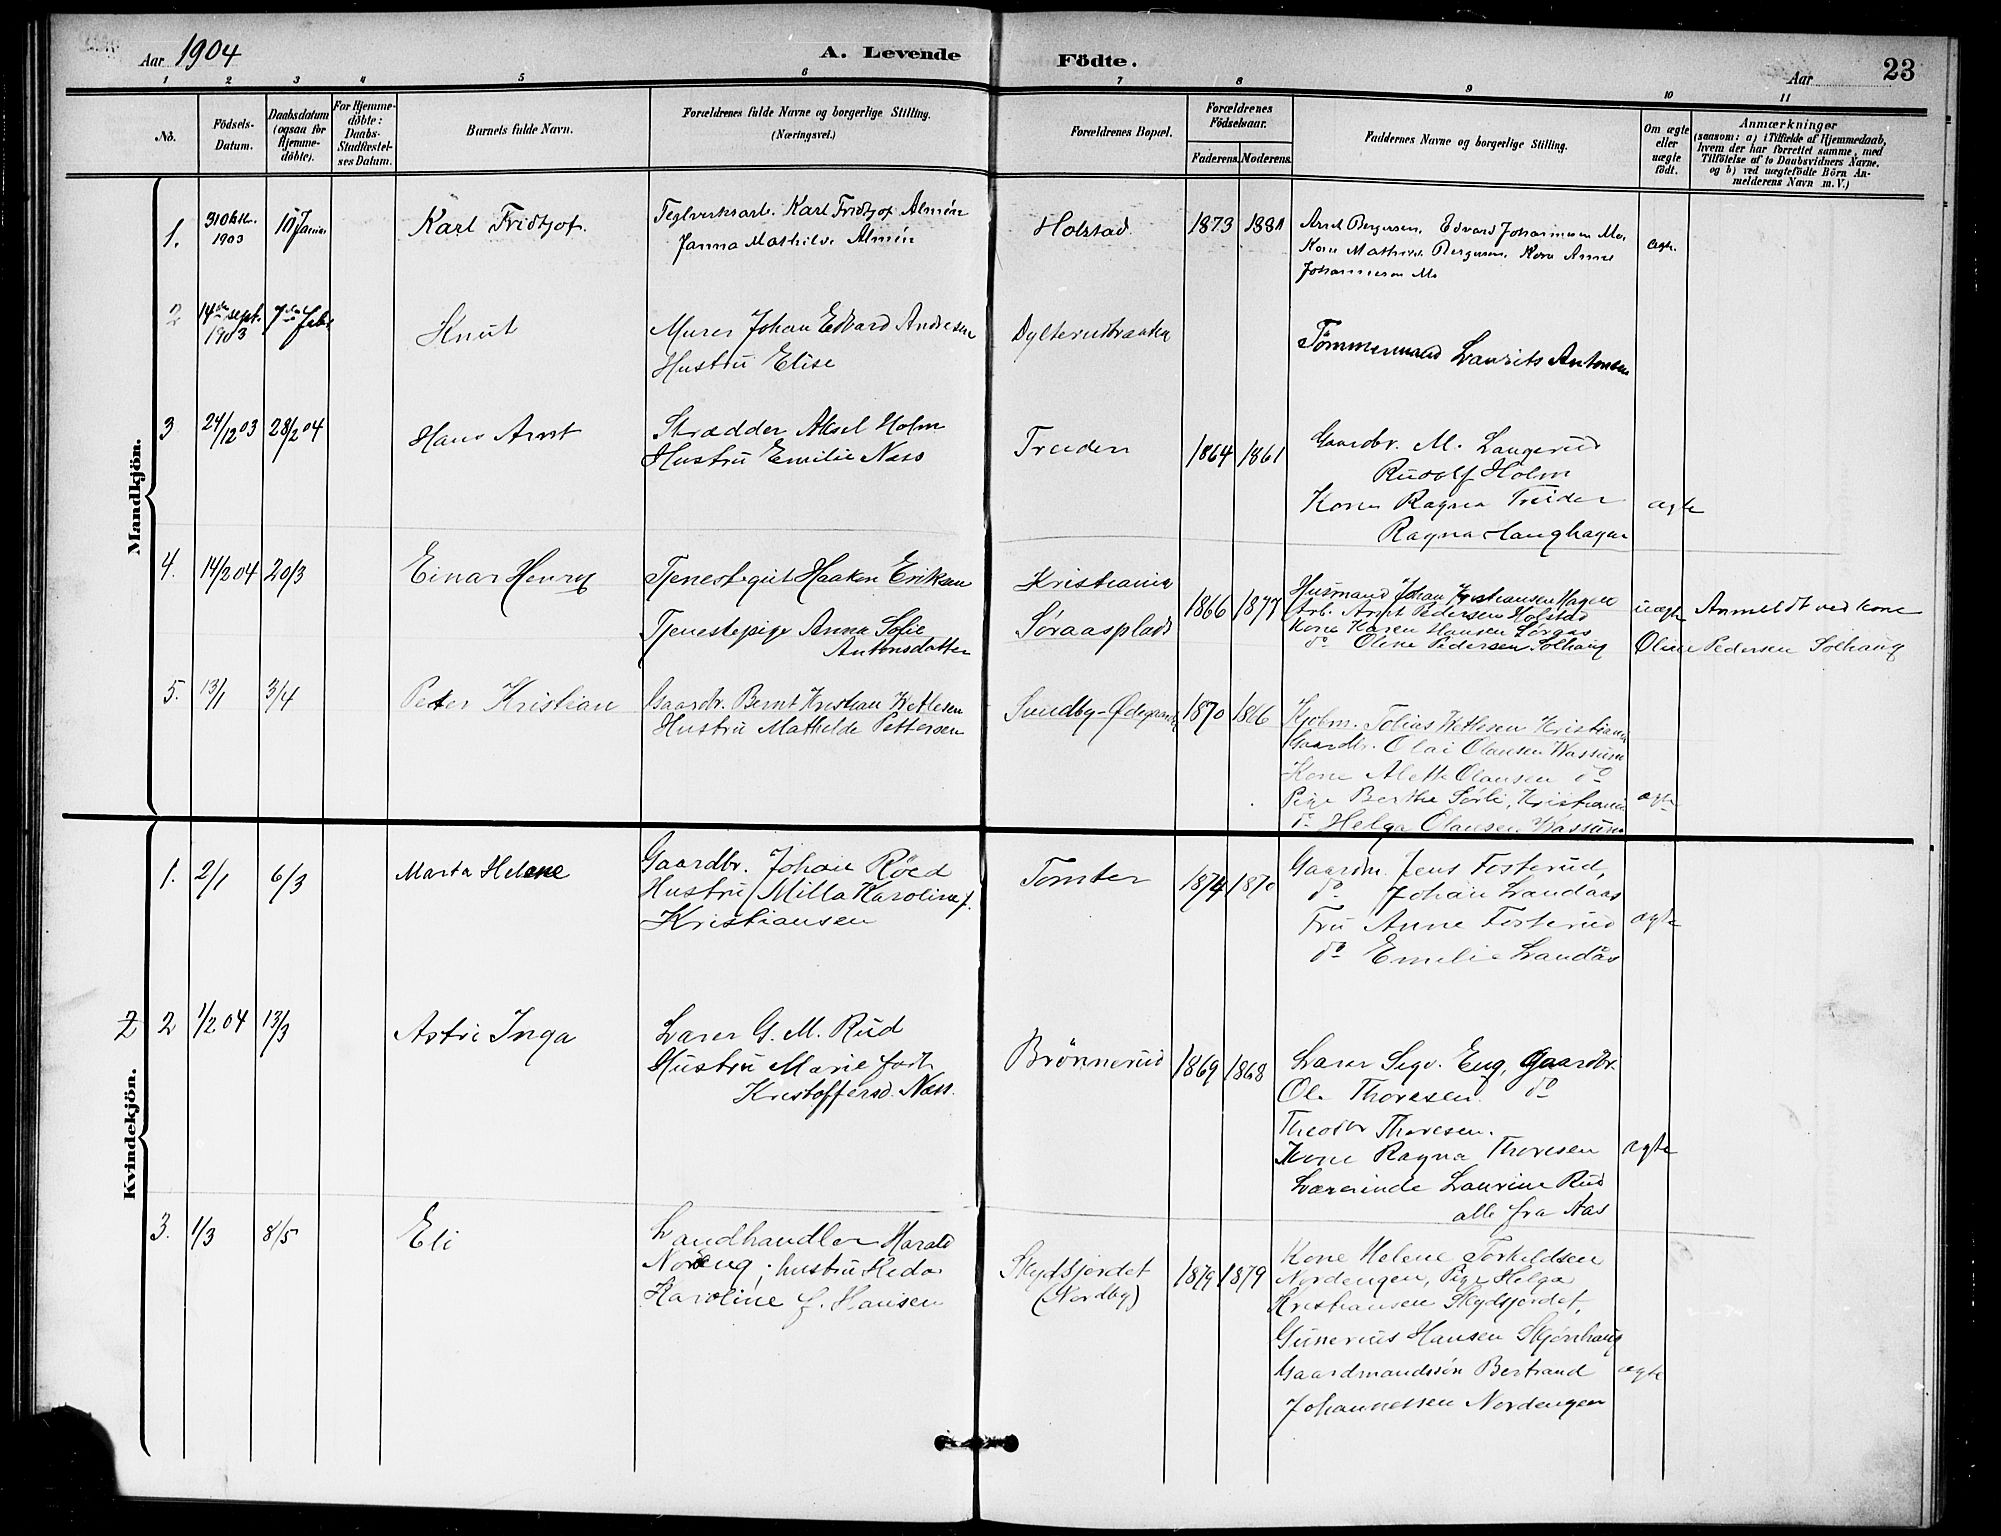 Aar 1904
A. Levende Födte.
Aar
23
1 2 3 4 5 6 7 8 9 10 11
No.
Födsels-
Datum.
Daabsdatum
(ogsaa for
Hjemme-
døbte).
For Hjemme-
døbte:
Daabs-
Stadfæstel-
ses Datum.
Barnets fulde Navn.
Forældrenes fulde Navne og borgerlige Stilling.
(Næringsvei.)
Forældrenes Bopæl.
Forældrenes
Födselsaar.
Faderens. Moderens.
Faddernes Navne og borgerlige Stilling.
Om ægte
eller
uægte
födt.
Anmærkninger
(saasom: a) i Tilfælde af Hjemmedaab,
hvem der har forrettet samme, med
Tilföielse af to Daabsvidners Navne,
og b) ved uægtefödte Börn An-
melderens Navn m. V.)
Mandkjön.
1.
1903
Karl Fridtjof.
Teglverksarb. Karl Fridtjof Almén
Janna Mathilde Almén
Holstad
1873
Arnt Bergersen, Edvard Johannesen Mo,
Kone Mathilde Bergersen, Kone Anne
Johannesen Mo
ægte
2
14de sept.
1903
7de Febr
Knut
Murer Johan Edvard Andresen
Hustru Elise
Tømmermand Laurits Antonsen
3
24/12 03
28/2 04
Hans Arnt
Skrædder Aksel Holm
Hustru Emilie Næss
Treiden
1864
1861
Gaardbr. M. Langerud
Rudolf Holm
Kone Ragna Treider
Ragna Hanghagen
ægte
4.
14/2 04
20/3
Einar Henry
Tjenestegut Haaken Eriksen
Tjenestepige Anna Sofie
Antonsdatter
Kristiania
Søraasplads
1866
1877
Husmand Johan Kristiansen Hagen
Arb. Arnt Pedersen Holstad
Kone Karen Hansen Søraas
do Oline Pedersen Solhaug
uægte
Anmeldt ved kone
Oline Pedersen Solhaug
5.
13/1
3/4
Peter Kristian
Gaardbr. Bernt Kristian Ketlesen
Hustru Mathilde Pettersen
Sundby-Ødegaard
1870
1866
Kjøbm. Tobias Ketlesen Kristiania
Gaardbr. Olai Olausen Wassum
Kone Alette Olausen do
Pige Berthe Sørli, Kristiania
do Helga Olausen Wassum
ægte
Kvindekjön.
1.
2/1
6/3
Marta Helene
Gaardbr. Johan Røed
Hustru Milla Karoline f.
Kristiansen
Tomter
1874
1870
Gaardm. Jens Fosterud,
do Johan Landaas
Fru Anne Fosterud
do Emilie Landås
ægte
2 2
1/2 04
13/3
Astri Inga
Lærer G. M. Rud
Hustru Marie født
Kristoffersd. Næss.
Brønnerud
1869
1868
Lærer Sigv. Eng, Gaardbr.
Ole Thoresen. do
Theodor Thoresen.
Kone Ragna Thoresen
Lærerinde Laurine Rud
alle fra Aas
ægte
3.
1/3
8/5
Eli
Landhandler Harald
Noreng; hustru Heda
Karoline f. Hansen
Skydsjordet
(Nordby)
1879
1879
Kone Helene Torkildsen
Nordengen, Pige Helga
Kristiansen Skydsjordet,
Gunerius Hansen Skjønhaug
Gaardmandssön Bertrand
Johannessen Nordengen
ægte